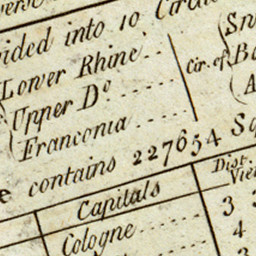 ided into 10 Circl
Lower Rhine
Upper Do
Franconia
Cir. of
e contains 227654 Sq
Capitals
Dist.
Vien
Cologne
3 3
4
3